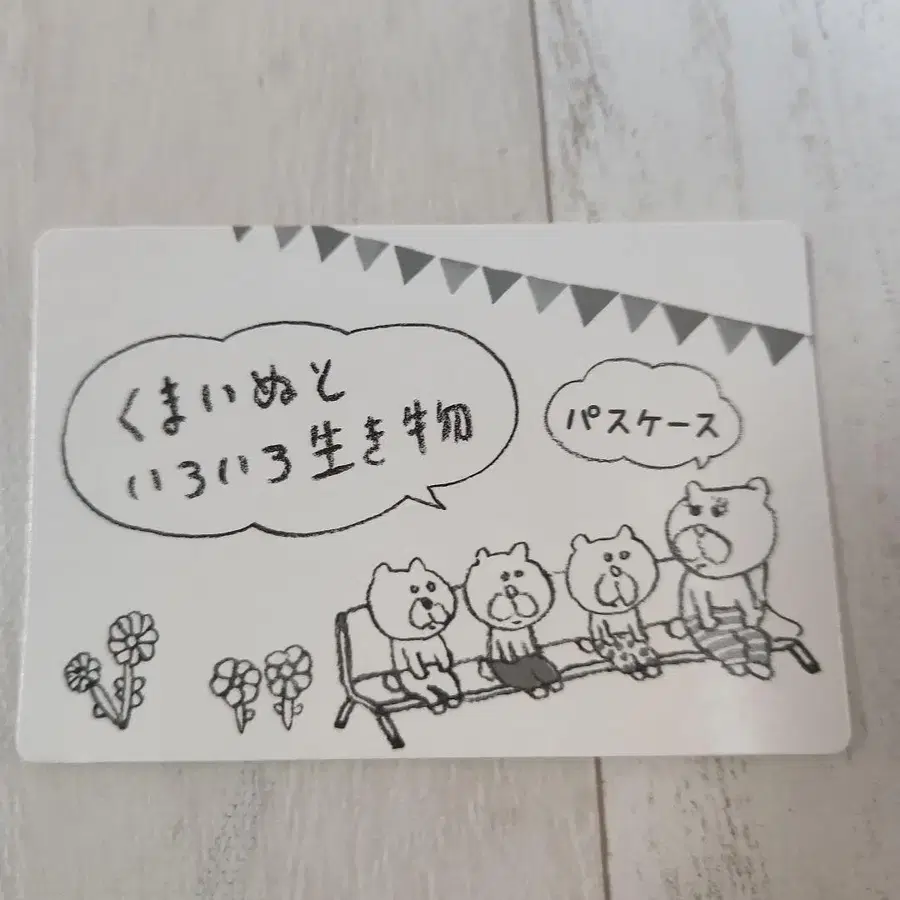 くまいぬと
いろいろ生き物
パスケース